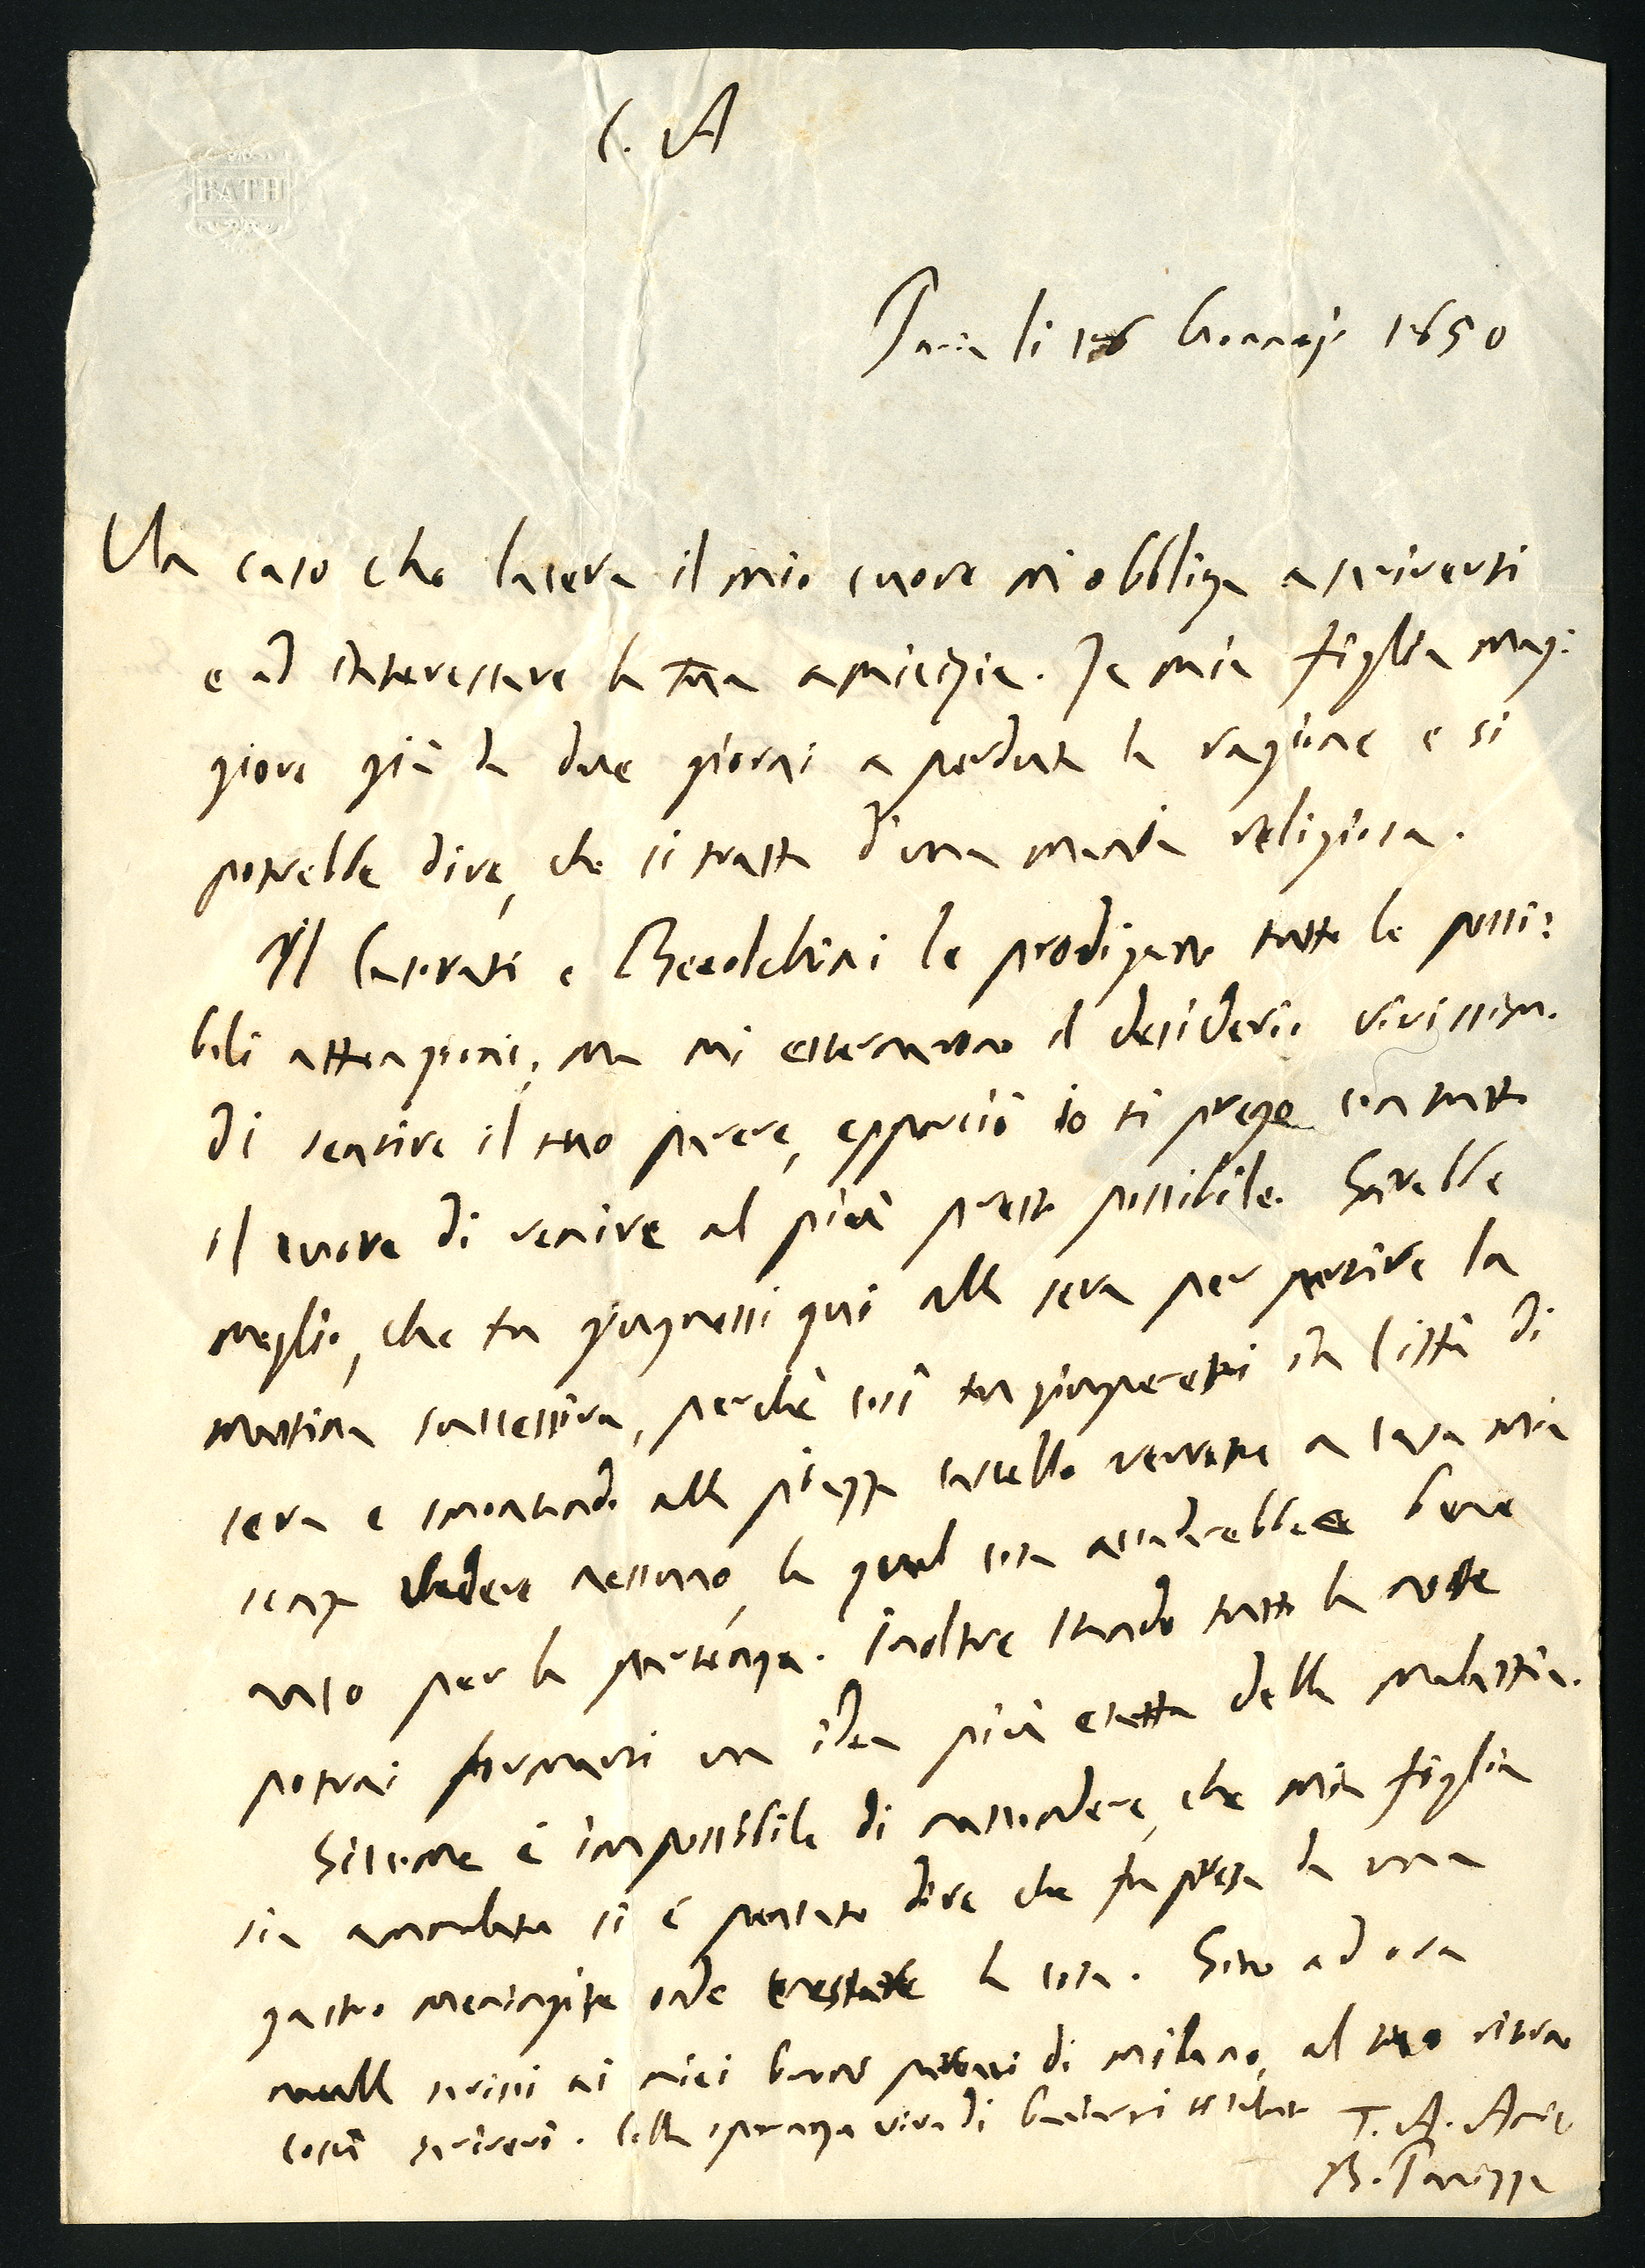 C. A
BATH
Pavia li 16 Gennajo 1850
Un caso che lacera il mio cuore m'obbliga a scriverti
e ad interessare la tua amicizia. La mia figlia mag:
giore già da due giorni a perduta la ragione e si
potrebbe dire, che si tratta d'una mania religiosa.
Il e le prodigano tutte le possi:
bili attenzioni, ma mi esternarono il desiderio vivissimo
di sentire il tuo parere, epperciò io ti prego con tutto
il cuore di venire al più presto possibile. Sarebbe
meglio, che tu giugnessi qui alla sera per partire la
mattina successiva, perchè così tu giungeresti in Città di
sera e smontando alla piazza castello verresti a casa mia
senza vedere nessuno, la qual cosa accadrebbe bene
anco per la partenza. Inoltre stando tutta la notte
potrai formarti un idea più esatta della malattia.
Siccome è impossibile di nascondere, che mia figlia
sia ammalata si è pensato dire che fu presa da una
gastro meningite onde la cosa. Sino ad ora
nulla scrissi ai miei buoni di Milano, al tuo ritorno
costì scriverò. Colla speranza viva di
T. A. Amico
B. Panizza